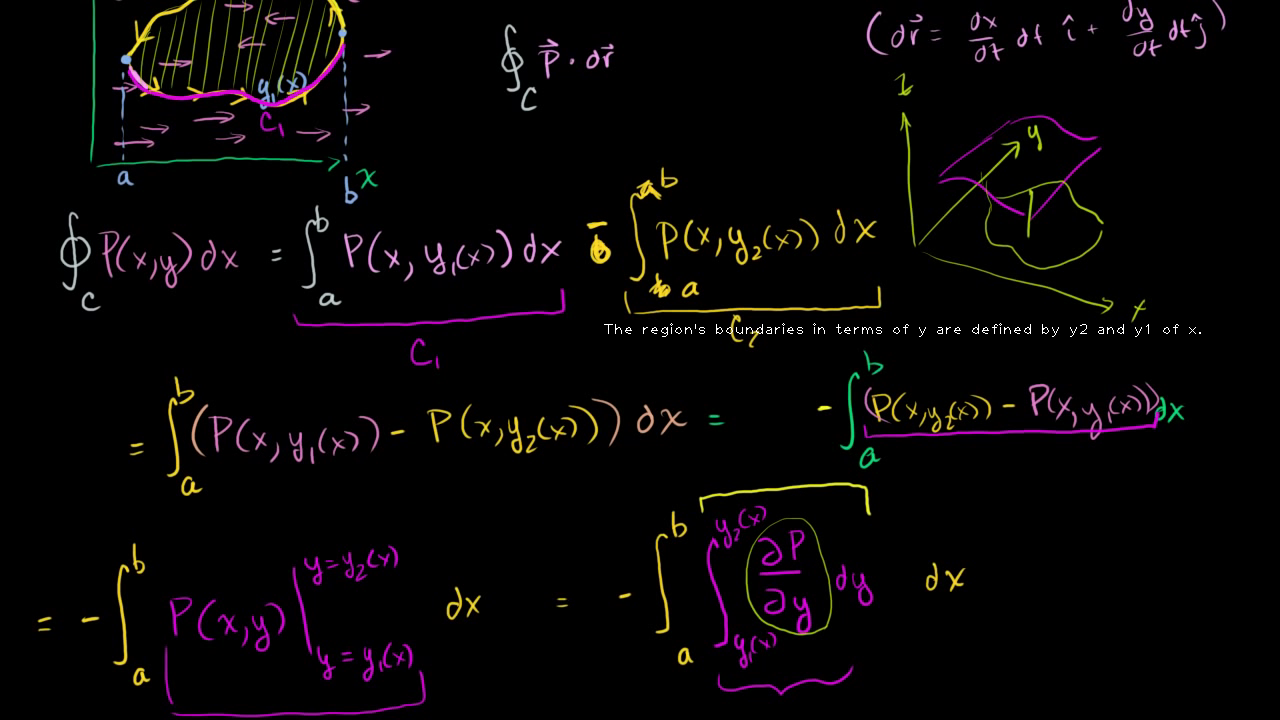 ∮_C P⃗ · dr⃗
(dr⃗ = dx/dt dt î + dy/dt dt ĵ)
y₁(x)
C₁
a
b
x
z
y
x
∮_C P(x,y) dx = ∫_a^b P(x, y₁(x)) dx - ∫_a^b P(x, y₂(x)) dx
C₁
C₂
The region's boundaries in terms of y are defined by y2 and y1 of x.
= ∫_a^b (P(x, y₁(x)) - P(x, y₂(x))) dx = - ∫_a^b (P(x, y₂(x)) - P(x, y₁(x))) dx
= - ∫_a^b P(x,y) |_{y = y₁(x)}^{y = y₂(x)} dx = - ∫_a^b ∫_{y₁(x)}^{y₂(x)} ∂P/∂y dy dx